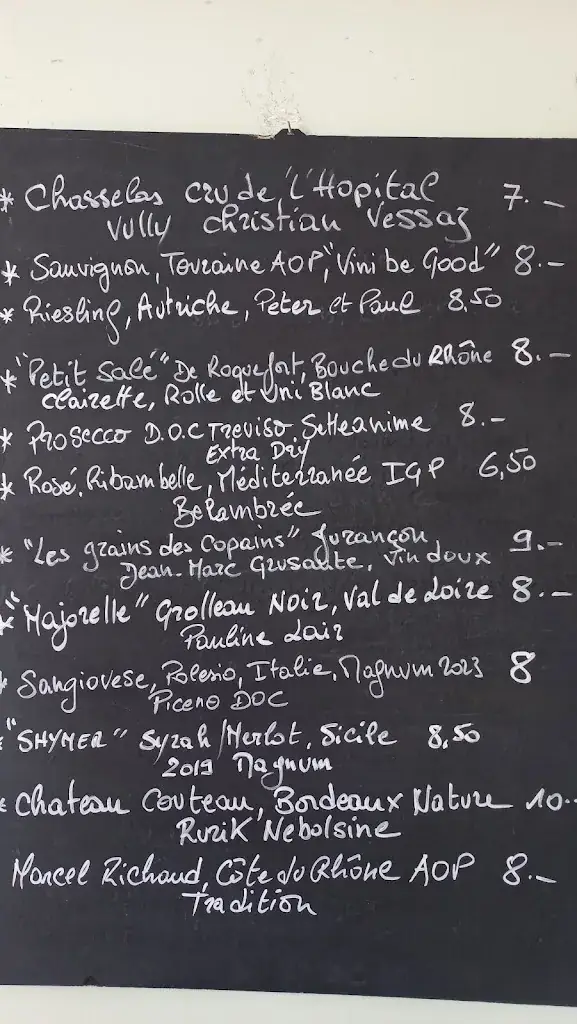 * Chasselas cru de l'Hopital 7.–
Vully Christian Vessaz
* Sauvignon, Touraine AOP, "Vini be Good" 8.–
* Riesling, Autriche, Peter et Paul 8,50
* "Petit Salé" De Roquefort, Bouche du Rhône 8.–
Clairette, Rolle et Uni Blanc
* Prosecco D.O.C Treviso, Setteanime 8.–
Extra Dry
* Rosé, Ribambelle, Méditerranée IGP 6,50
Belambrée
* "Les grains des Copains" Jurançon 9.–
Jean-Marc Grusaute, Vin doux
* "Majorelle" Grolleau Noir, Val de Loire 8.–
Pauline Lair
* Sangiovese, Polesio, Italie, Magnum 2023 8
Piceno DOC
* "SHYMER" Syrah/Merlot, Sicile 8,50
2019 Magnum
* Chateau Couteau, Bordeaux Nature 10.–
Rurik Nebolsine
Marcel Richaud, Côte du Rhône AOP 8.–
Tradition